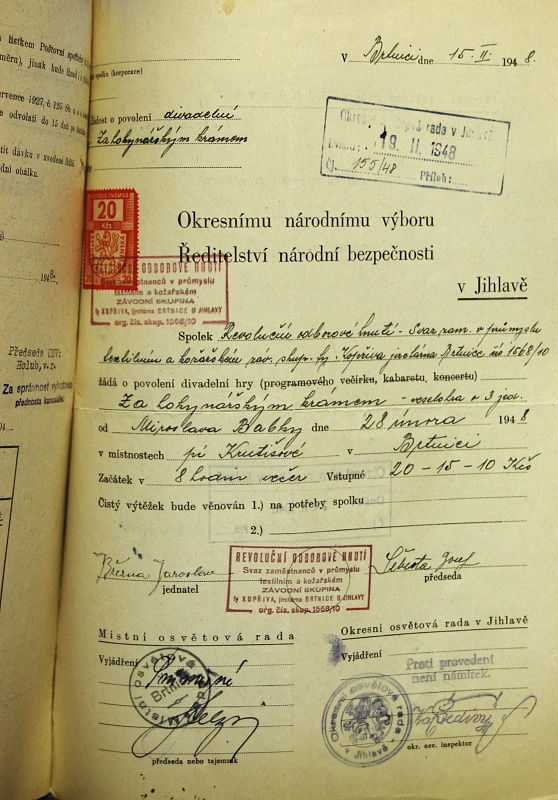 lístkem Poštovní spořitelny
jinak bude
ervence 1927, č. 128 Sb.
odvolati do 15 dnů po
tit dávku v uvedené
obálku.
1948.
Předseda OSK:
Holub, v.r.
Za správnost vyhotovení
přednosta kanceláře:
V Brtnici dne 15. II. 1948.
spolku (korporace)
žádost o povolení divadelní
Za lohynářským krámem
Okresní osvětová rada v Jihlavě
Došlo: 19. II. 1948
Čj. 155/48 Příloh:
20
Kčs
Okresnímu národnímu výboru
Ředitelství národní bezpečnosti
v Jihlavě
REVOLUČNÍ ODBOROVÉ HNUTÍ
Svaz zaměstnanců v průmyslu
textilním a kožařském
ZÁVODNÍ SKUPINA
fy KOPŘIVA, jirchárna BRTNICE U JIHLAVY
org. čís. skup. 1568/10
Spolek Revoluční odborové hnutí - Svaz zam. v průmyslu
textilním a kožařském zav. skup. fy. Kopřiva Brtnice čís 1568/10
žádá o povolení divadelní hry (programového večírku, kabaretu, koncertu)
Za lohynářským krámem - veselohra o 3 jed.
od Miroslava Babky dne 28 února 1948
v místnostech v Brtnici
Začátek v 8 hodin večer Vstupné 20 - 15 - 10 Kčs
Čistý výtěžek bude věnován 1.) na potřeby spolku
2.)
Jaroslava
jednatel
REVOLUČNÍ ODBOROVÉ HNUTÍ
Svaz zaměstnanců v průmyslu
textilním a kožařském
ZÁVODNÍ SKUPINA
fy KOPŘIVA, jirchárna BRTNICE U JIHLAVY
org. čís. skup. 1568/10
Šebesta Josef
předseda
Místní osvětová rada
Vyjádření:
Místní osvětová rada
Brtnice
předseda nebo tajemník
Okresní osvětová rada v Jihlavě
Vyjádření:
Proti provedení
není námitek.
Okresní osvětová rada
v Jihlavě
okr. osv. inspektor